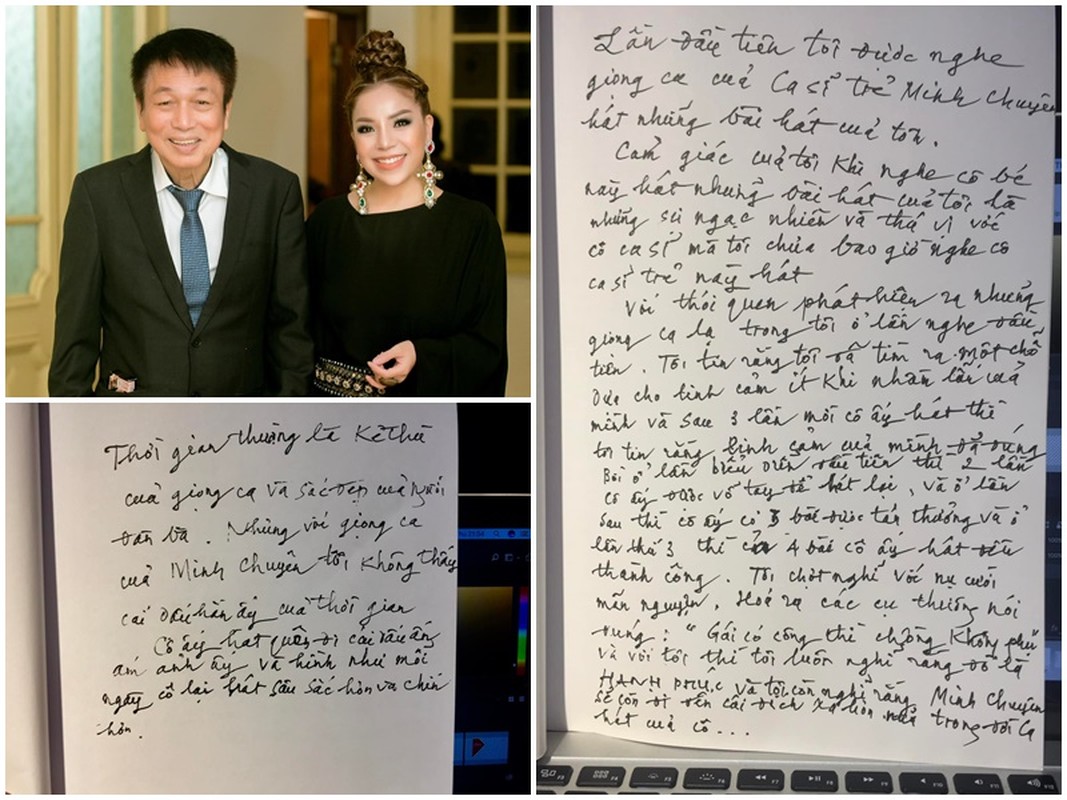 Lần đầu tiên tôi được nghe
giọng ca cuả Ca sĩ trẻ Minh Chuyên
hát những bài hát cuả tôi.
Cảm giác cuả tôi khi nghe cô bé
này hát những bài hát cuả tôi là
những sự ngạc nhiên và thú vị với
cô ca sĩ mà tôi chưa bao giờ nghe cô
ca sĩ trẻ này hát
Với thói quen phát hiện ra những
giọng ca lạ trong tôi ở lần nghe đầu
tiên. Tôi tin rằng tôi đã tìm ra một chỗ
dựa cho tình cảm ít khi nhầm lẫn cuả
mình và sau 3 lần mời cô ấy hát thì
tôi tin rằng tình cảm cuả mình đã đúng
Bởi ở lần biểu diễn đầu tiên thì 2 lần
cô ấy được vỗ tay để hát lại, và ở lần
sau thì cô ấy có 3 bài được tán thưởng và ở
lần thứ 3 thì cả 4 bài cô ấy hát đều
thành công. Tôi chợt nghĩ với nụ cười
mãn nguyện. Hoá ra các cụ thường nói
đúng: "Gái có công thì chồng không phụ
và với tôi thì tôi luôn nghĩ rằng đó là
HẠNH PHÚC và tôi còn nghĩ rằng Minh Chuyên
sẽ còn đi đến cái đích xa hơn nữa trong đời ca
hát cuả cô...
Thời gian thường là kẻ thù
cuả giọng ca và sắc đẹp cuả người
đàn bà. Nhưng với giọng ca
cuả Minh Chuyên tôi không thấy
cái dấu hằn ấy cuả thời gian
Cô ấy hát quên đi cái dấu ấn
ám ảnh ấy và hình như mỗi
ngày cô lại hát sâu sắc hơn và chín
hơn.